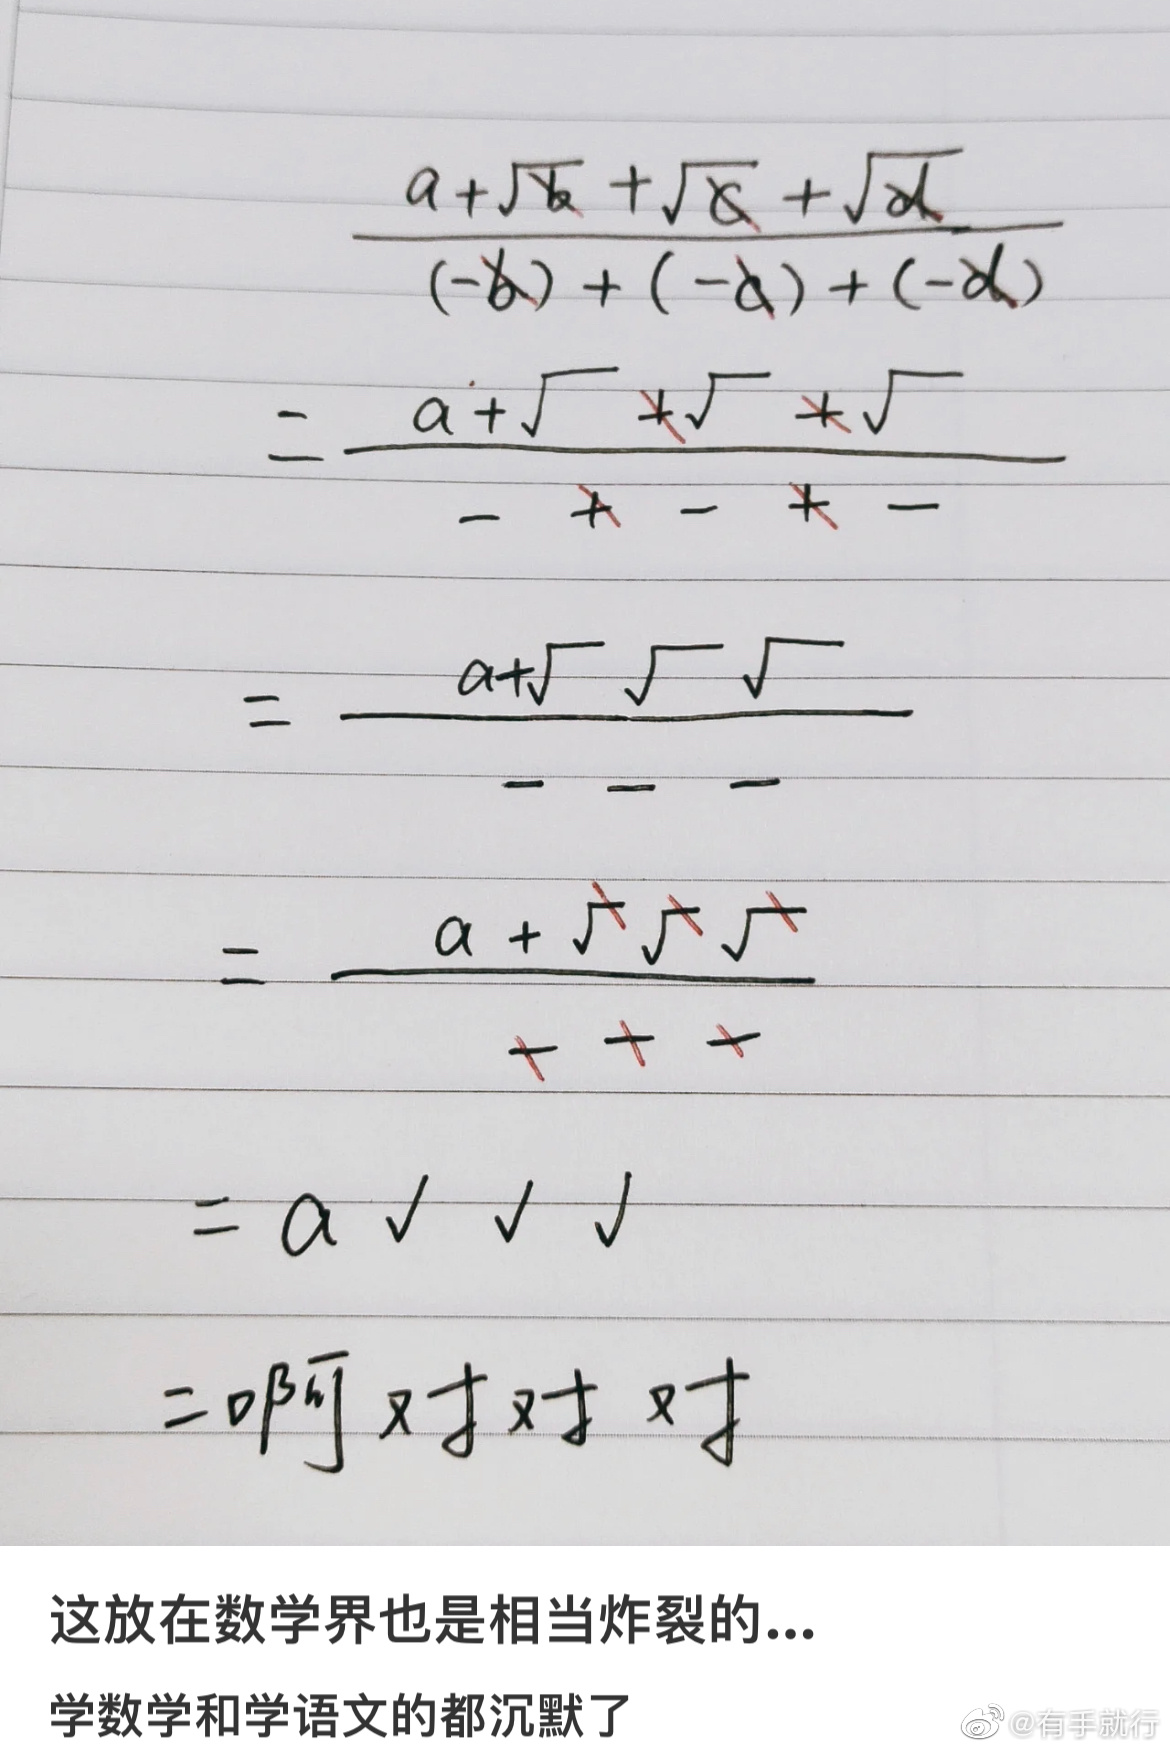 a+√b+√c+√d
(-b)+(-c)+(-d)
= a+√ +√ +√
- + - + -
= a+√ √ √
- - -
= a+√ √ √
- - -
= a √ √ √
=啊对对对
这放在数学界也是相当炸裂的...
学数学和学语文的都沉默了
@有手就行